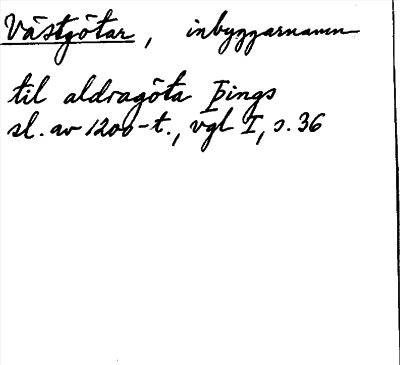 Västgötar, inbyggarnamn
til aldragöta Þings
sl. av 1200-t., vgl I, s. 36